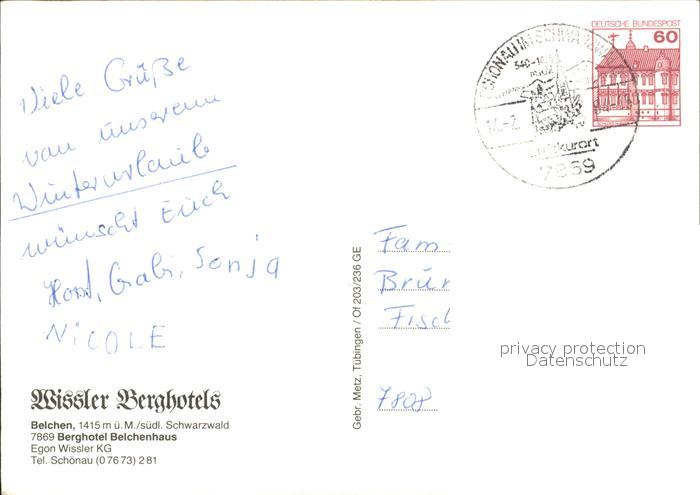 Viele Grüße
von unserem
Winterurlaub
wünscht Euch
Horst, Gabi, Sonja
NICOLE
Wissler Berghotels
Belchen, 1415 m ü. M./südl. Schwarzwald
7869 Berghotel Belchenhaus
Egon Wissler KG
Tel. Schönau (0 76 73) 2 81
Gebr. Metz, Tübingen / Of 203/236 GE
DEUTSCHE BUNDESPOST
60
SCHÖNAU IM SCHWARZW
14.-2.
Luftkurort
7869
Fam
Brün
Fisc
7808
privacy protection
Datenschutz